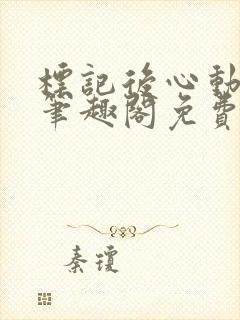 標記後心動
筆趣閣免費
秦瓊